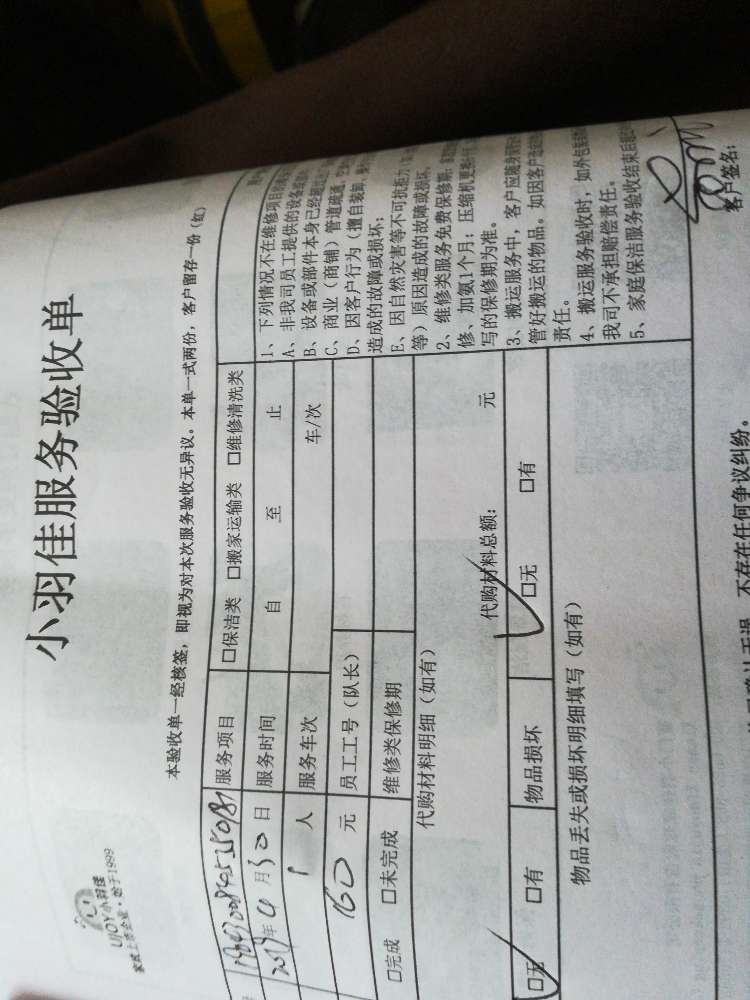 UJOY小羽佳
家政上市企业·始于1999
小羽佳服务验收单
本验收单一经核签，即视为对本次服务验收无异议。本单一式两份，客户留存一份（红）
服务项目 □保洁类 □搬家运输类 □维修清洗类
年4月30日 服务时间 自 至 止
1人 服务车次 车/次
160元 员工工号（队长）
□完成 □未完成 维修类保修期
代购材料明细（如有）
代购材料总额： 元
□无 □有 物品损坏 □无 □有
物品丢失或损坏明细填写（如有）
1、下列情况不在维修项目
A、非我司员工提供的设备
B、设备或部件本身已经
C、商业（商铺）管道疏通，
D、因客户行为（擅自装卸，
造成的故障或损坏；
E、因自然灾害等不可抗力
等）原因造成的故障或损坏。
2、维修类服务免费保修期，
修、加氨1个月；压缩机更
写的保修期为准。
3、搬运服务中，客户应随身
管好搬运的物品。如因客户
责任。
4、搬运服务验收时，如外包
我司不承担赔偿责任。
5、家庭保洁服务验收结束后
客户签名：
不存在任何争议纠纷。